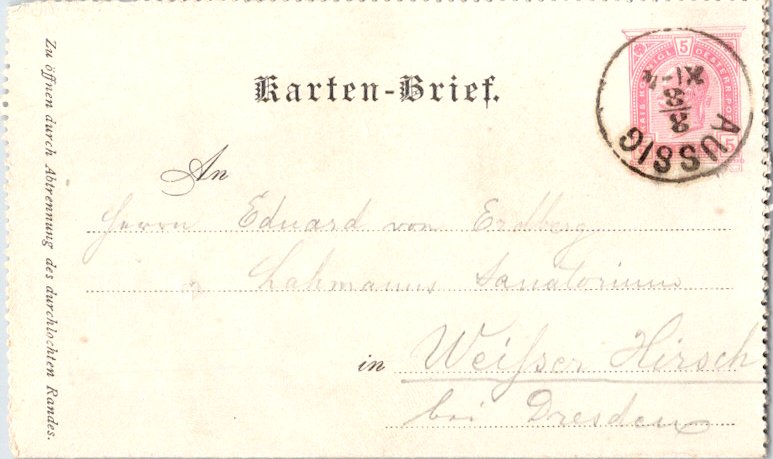 Karten-Brief.
An
Herrn Eduard von Erdberg
Lahmanns Sanatorium
in Weißer Hirsch
bei Dresden
Zu öffnen durch Abtrennung des durchlochten Randes.
5
AUSSIG
3
8
XI-4
5